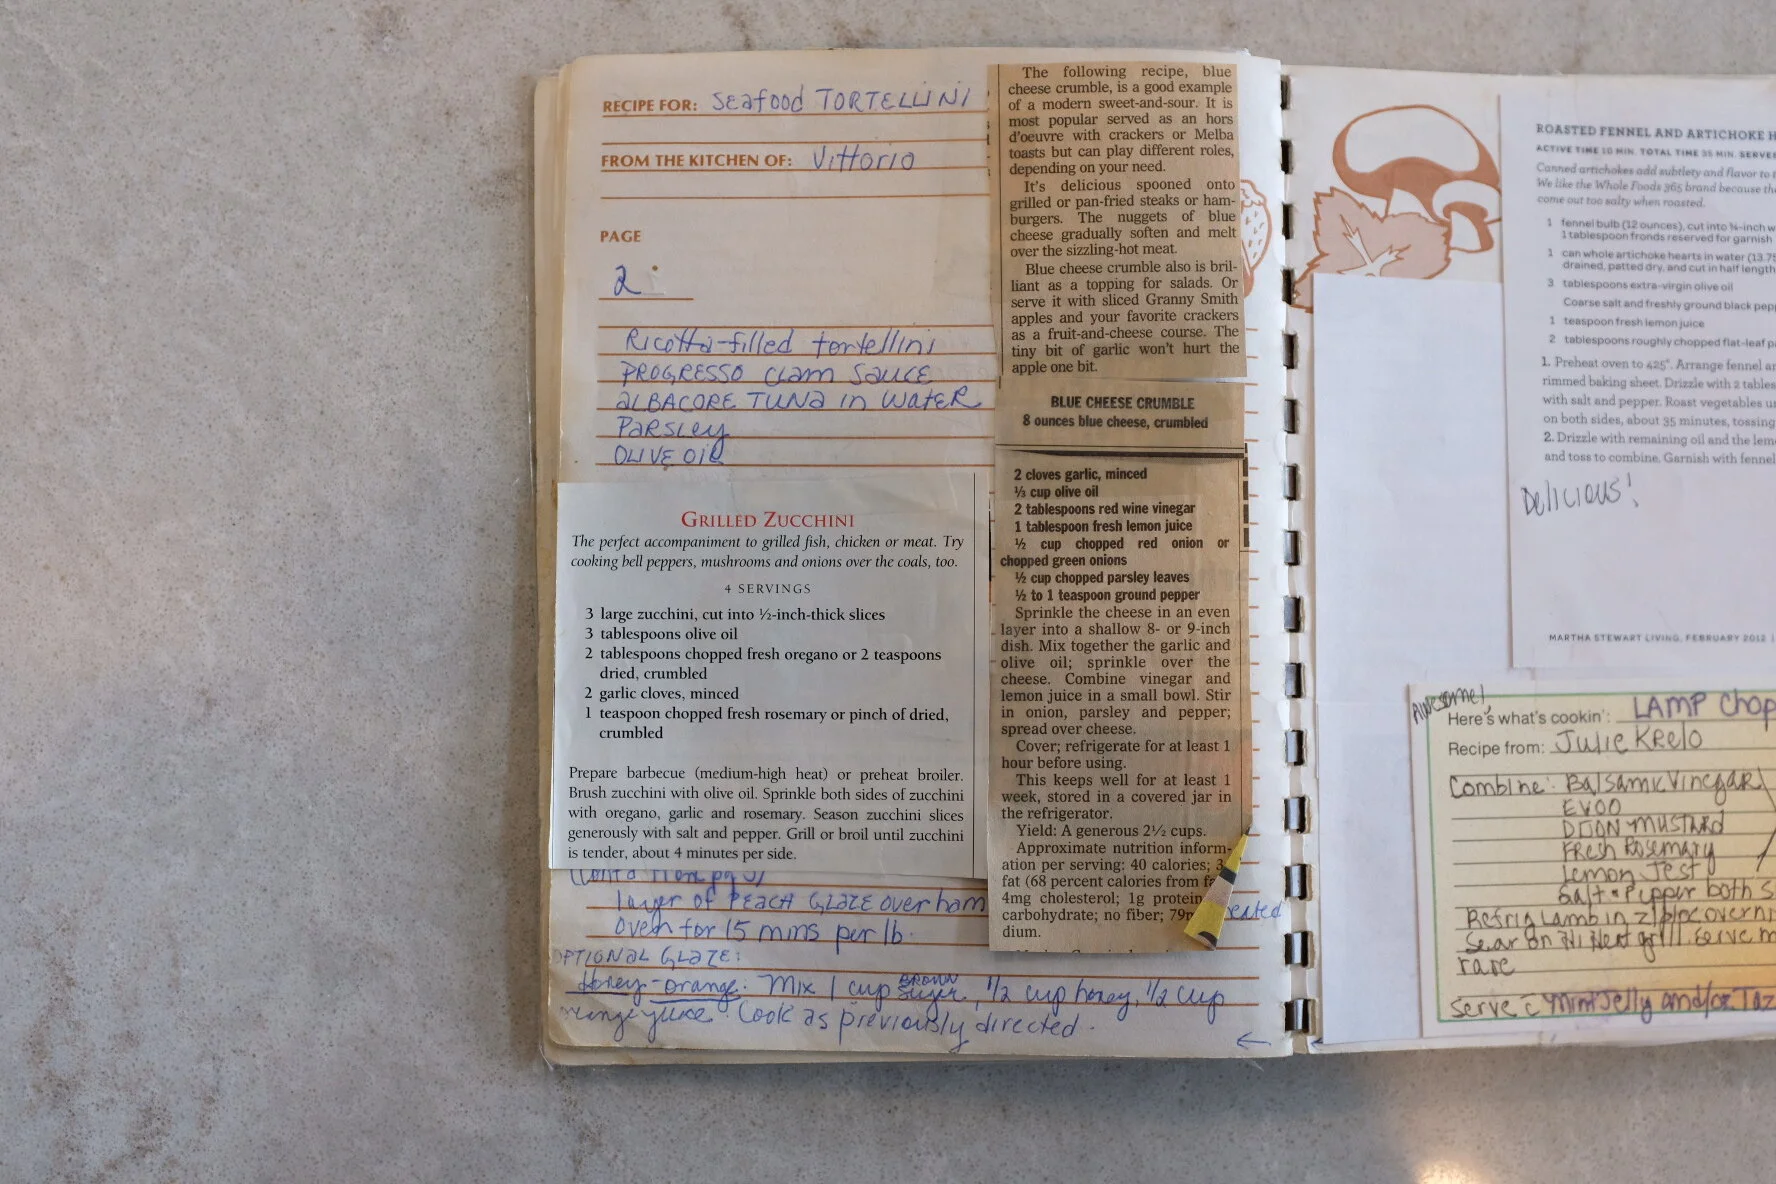 RECIPE FOR: Seafood TORTELLINI
FROM THE KITCHEN OF: Vittorio
PAGE
2
Ricotta-filled tortellini
PROGRESSO CLAM SAUCE
ALBACORE TUNA in WATER
PARSLEY
OLIVE OIL
GRILLED ZUCCHINI
The perfect accompaniment to grilled fish, chicken or meat. Try
cooking bell peppers, mushrooms and onions over the coals, too.
4 SERVINGS
3 large zucchini, cut into ½-inch-thick slices
3 tablespoons olive oil
2 tablespoons chopped fresh oregano or 2 teaspoons
dried, crumbled
2 garlic cloves, minced
1 teaspoon chopped fresh rosemary or pinch of dried,
crumbled
Prepare barbecue (medium-high heat) or preheat broiler.
Brush zucchini with olive oil. Sprinkle both sides of zucchini
with oregano, garlic and rosemary. Season zucchini slices
generously with salt and pepper. Grill or broil until zucchini
is tender, about 4 minutes per side.
layer of PEACH GLAZE over ham
oven for 15 mins per lb.
OPTIONAL GLAZE:
Honey-orange. Mix 1 cup BROWN sugar, 1/2 cup honey, 1/2 cup
juice. Cook as previously directed.
←
The following recipe, blue
cheese crumble, is a good example
of a modern sweet-and-sour. It is
most popular served as an hors
d'oeuvre with crackers or Melba
toasts but can play different roles,
depending on your need.
It's delicious spooned onto
grilled or pan-fried steaks or ham-
burgers. The nuggets of blue
cheese gradually soften and melt
over the sizzling-hot meat.
Blue cheese crumble also is bril-
liant as a topping for salads. Or
serve it with sliced Granny Smith
apples and your favorite crackers
as a fruit-and-cheese course. The
tiny bit of garlic won't hurt the
apple one bit.
BLUE CHEESE CRUMBLE
8 ounces blue cheese, crumbled
2 cloves garlic, minced
⅓ cup olive oil
2 tablespoons red wine vinegar
1 tablespoon fresh lemon juice
½ cup chopped red onion or
chopped green onions
½ cup chopped parsley leaves
½ to 1 teaspoon ground pepper
Sprinkle the cheese in an even
layer into a shallow 8- or 9-inch
dish. Mix together the garlic and
olive oil; sprinkle over the
cheese. Combine vinegar and
lemon juice in a small bowl. Stir
in onion, parsley and pepper;
spread over cheese.
Cover; refrigerate for at least 1
hour before using.
This keeps well for at least 1
week, stored in a covered jar in
the refrigerator.
Yield: A generous 2½ cups.
Approximate nutrition inform-
ation per serving: 40 calories; 3
fat (68 percent calories from
4mg cholesterol; 1g protein
carbohydrate; no fiber; 79m
dium.
ROASTED FENNEL AND ARTICHOKE H
ACTIVE TIME 10 MIN. TOTAL TIME 35 MIN. SERVES
Canned artichokes add subtlety and flavor to t
We like the Whole Foods 365 brand because the
come out too salty when roasted.
1 fennel bulb (12 ounces), cut into ¼-inch w
1 tablespoon fronds reserved for garnish
1 can whole artichoke hearts in water (13.75
drained, patted dry, and cut in half length
3 tablespoons extra-virgin olive oil
Coarse salt and freshly ground black pepp
1 teaspoon fresh lemon juice
2 tablespoons roughly chopped flat-leaf pa
1. Preheat oven to 425°. Arrange fennel an
rimmed baking sheet. Drizzle with 2 tables
with salt and pepper. Roast vegetables un
on both sides, about 35 minutes, tossing
2. Drizzle with remaining oil and the lemo
and toss to combine. Garnish with fennel
Delicious!
MARTHA STEWART LIVING, FEBRUARY 2012
Awesome!
Here's what's cookin': LAMP Chop
Recipe from: Julie Krelo
Combine: Balsamic Vinegar
EVOO
DIJON MUSTARD
Fresh Rosemary
Lemon Zest
Salt + Pepper both S
Refrig Lamb in ziploc overni
Sear on Hi Heat grill. Serve m
rare
Serve c̄ Mint Jelly and/or Taz